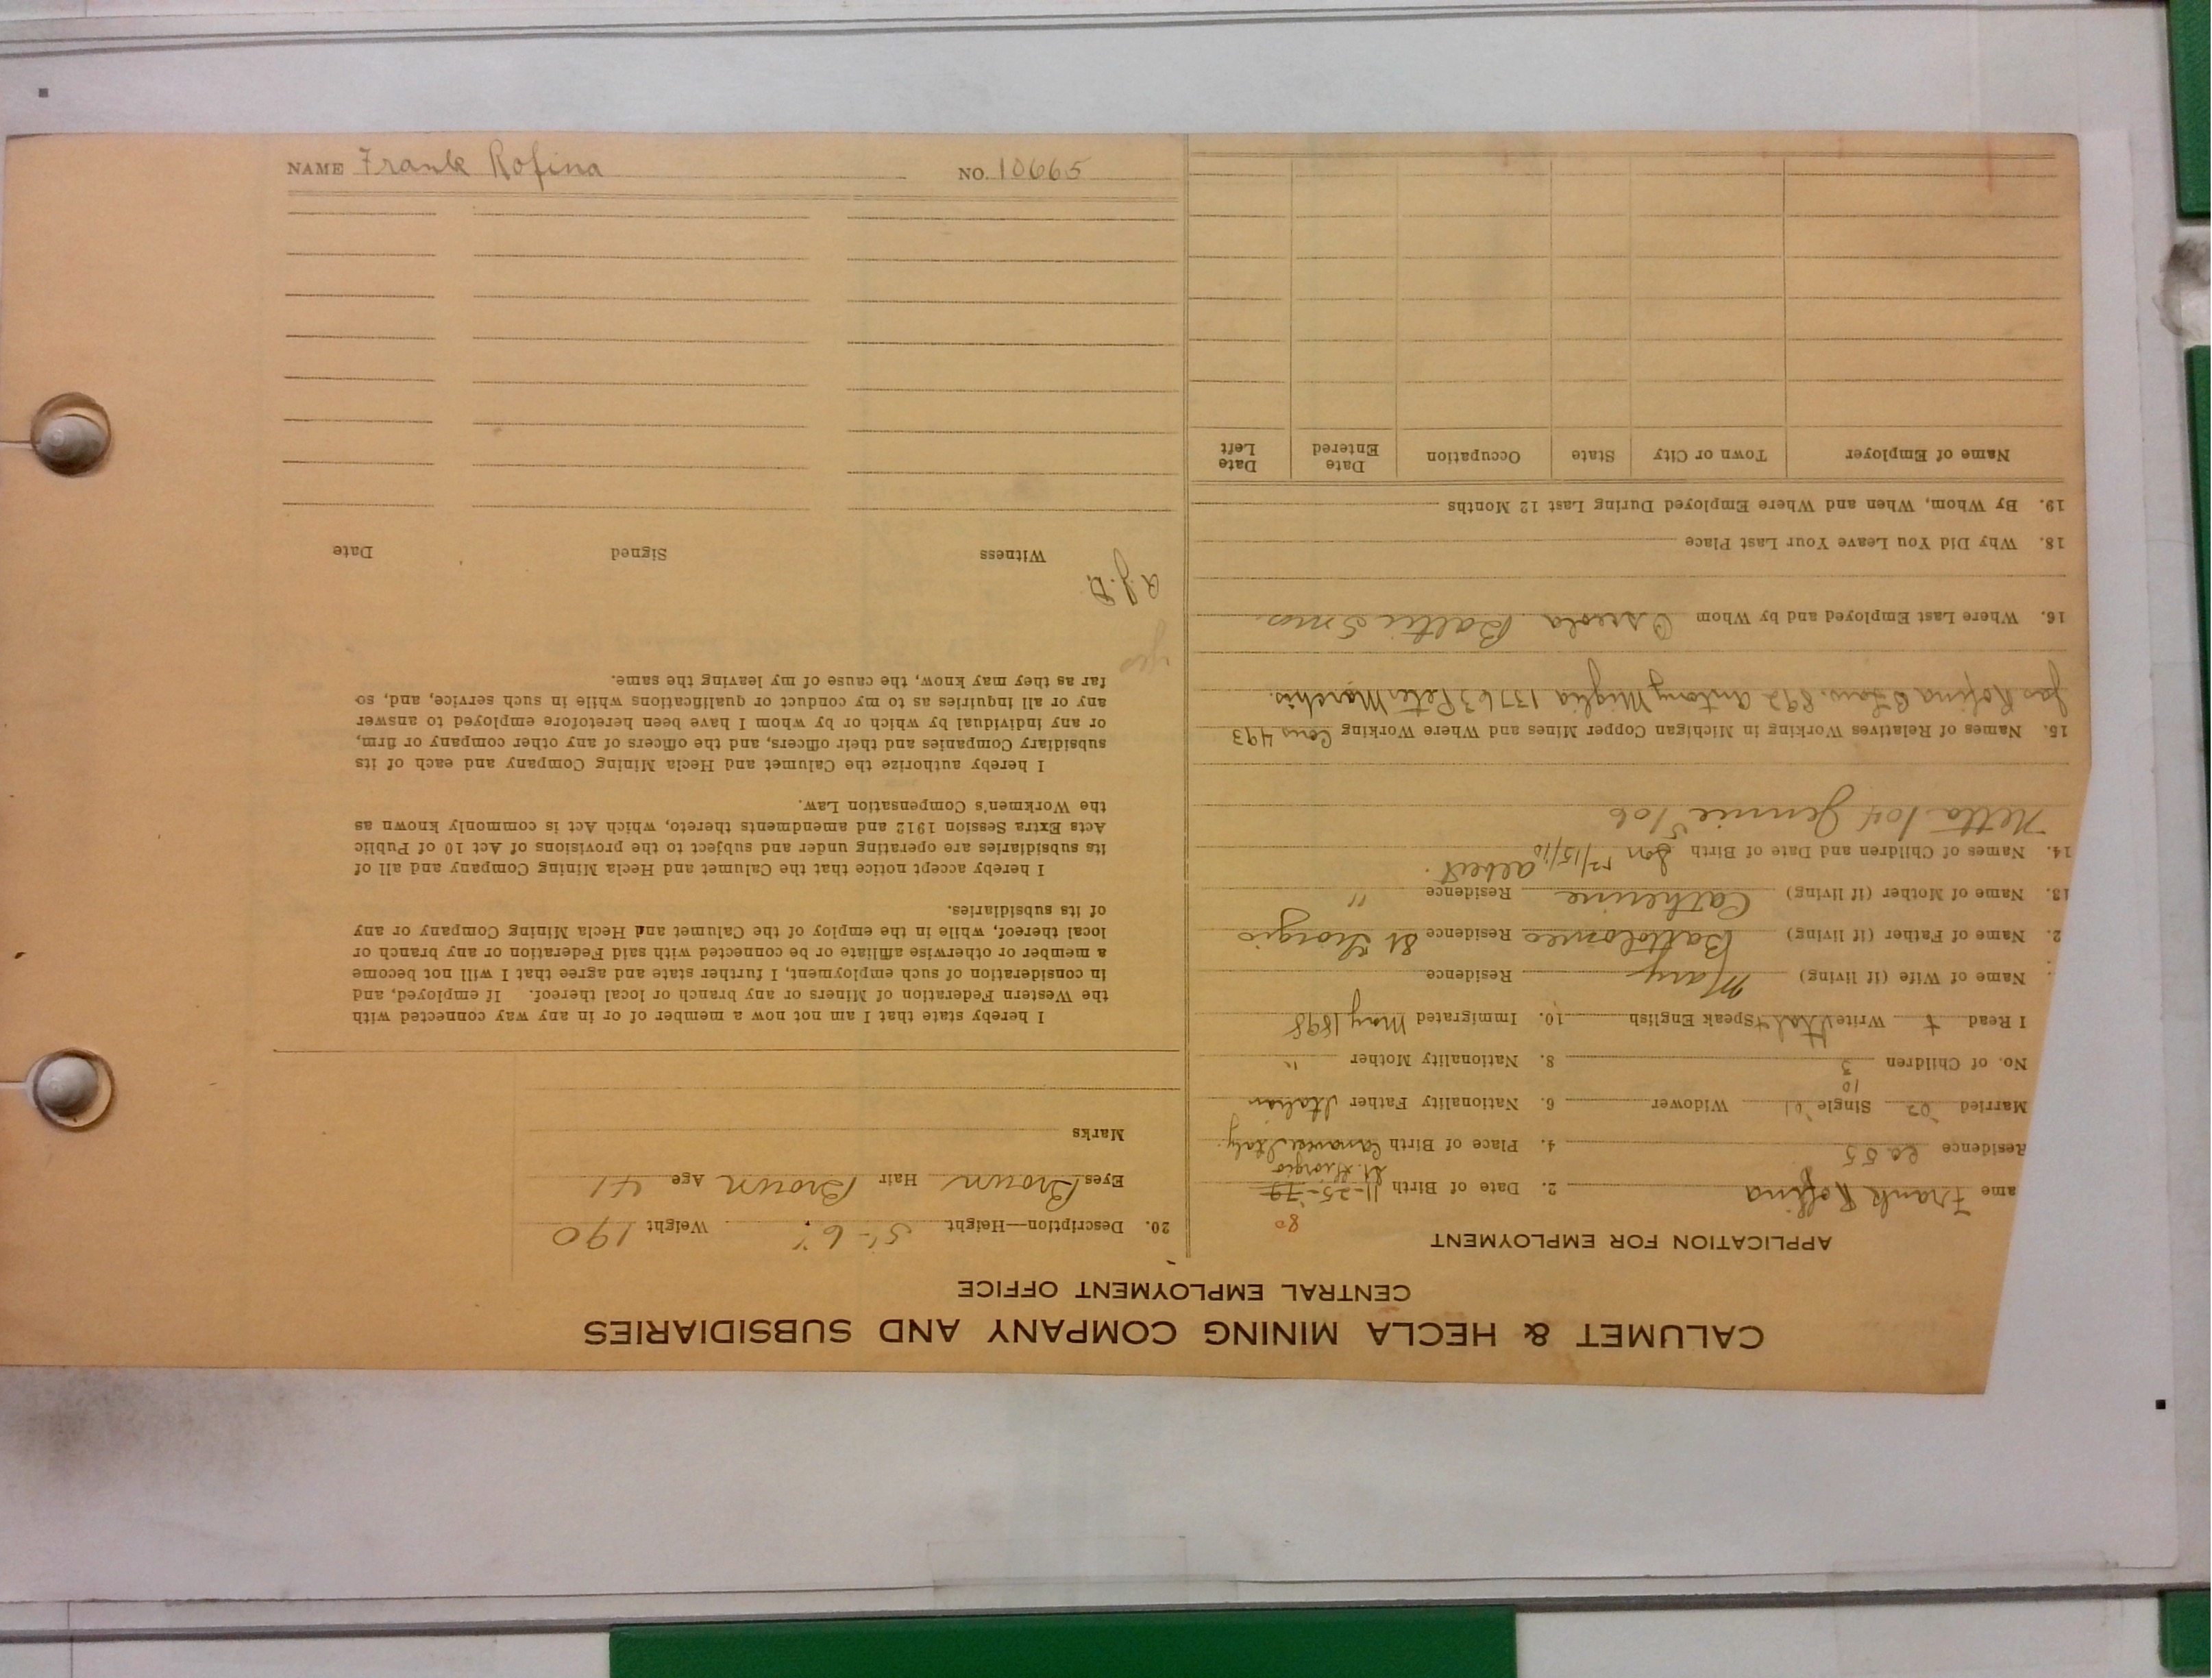 NAME Frank Rofina NO. 10665
CALUMET & HECLA MINING COMPANY AND SUBSIDIARIES
CENTRAL EMPLOYMENT OFFICE
APPLICATION FOR EMPLOYMENT
ame Frank Roffina 2. Date of Birth 11-25-79 80
Residence 4. Place of Birth St. Giorgio Canavese Italy
Married 02 Single 01 Widower 6. Nationality Father Italian
10
No. of Children 3 8. Nationality Mother "
I Read + Write Ital + Speak English 10. Immigrated May 1898
. Name of Wife (if living) Mary Residence
2. Name of Father (if living) Bartolomeo Residence St Giorgio
13. Name of Mother (if living) Catherine Residence "
14. Names of Children and Date of Birth Son 12/15/10 albert.
Netta 104 Jennie 5/06
15. Names of Relatives Working in Michigan Copper Mines and Where Working Cons 493
Jas Rofina B Law. 892 Antony Miglia 13763 Peter Marchis.
16. Where Last Employed and by Whom Osceola Baltic 5 mos.
18. Why Did You Leave Your Last Place
19. By Whom, When and Where Employed During Last 12 Months
Name of Employer Town or City State Occupation Date Entered Date Left
20. Description—Height 5'-6" Weight 190
Eyes Brown Hair Brown Age 41
Marks
I hereby state that I am not now a member of or in any way connected with
the Western Federation of Miners or any branch or local thereof. If employed, and
in consideration of such employment, I further state and agree that I will not become
a member or otherwise affiliate or be connected with said Federation or any branch or
local thereof, while in the employ of the Calumet and Hecla Mining Company or any
of its subsidiaries.
I hereby accept notice that the Calumet and Hecla Mining Company and all of
its subsidiaries are operating under and subject to the provisions of Act 10 of Public
Acts Extra Session 1912 and amendments thereto, which Act is commonly known as
the Workmen's Compensation Law.
I hereby authorize the Calumet and Hecla Mining Company and each of its
subsidiary Companies and their officers, and the officers of any other company or firm,
or any individual by which or by whom I have been heretofore employed to answer
any or all inquiries as to my conduct or qualifications while in such service, and, so
far as they may know, the cause of my leaving the same.
yes
Witness Signed Date